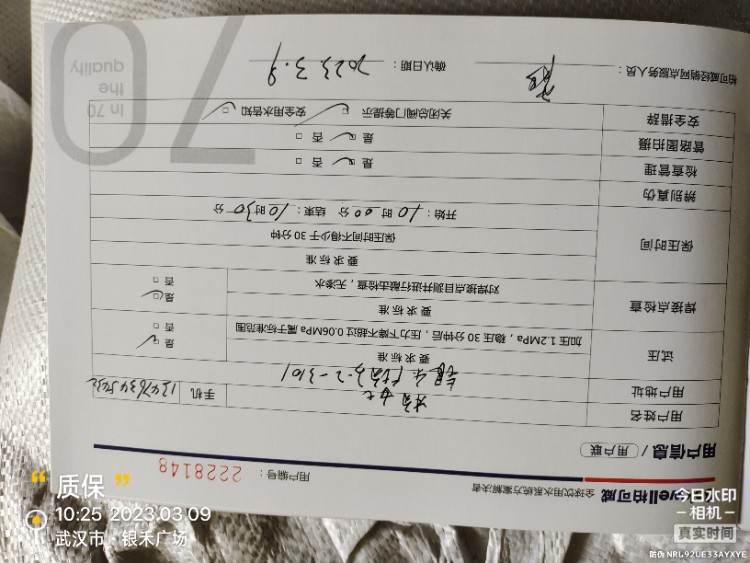 vell柏可威 全球饮用水系统方案解决者
用户编号： 2228148
用户信息 / 用户联
用户姓名
用户地址 2-3101
手机
试压 要求标准
加压1.2MPa，稳压30分钟后，压力下降不超过0.06MPa属于标准范围
是
否
焊接点检查 要求标准
对焊接点目测并进行敲击检查，无渗水
是
否
保压时间 要求标准
保压时间不得少于30分钟
开始：10时00分 结束：10时30分
辨别真伪
检查管理 是 否
管路图拍摄 是 否
安全措辞 关闭总阀门等提示 安全用水告知
柏可威经销网点服务人员：
确认日期： 2023.3.9
In 70
the
quality
70
“质保”
10:25 2023.03.09
武汉市·银禾广场
今日水印
相机
真实时间
防伪 NRL92UE33AYXYE